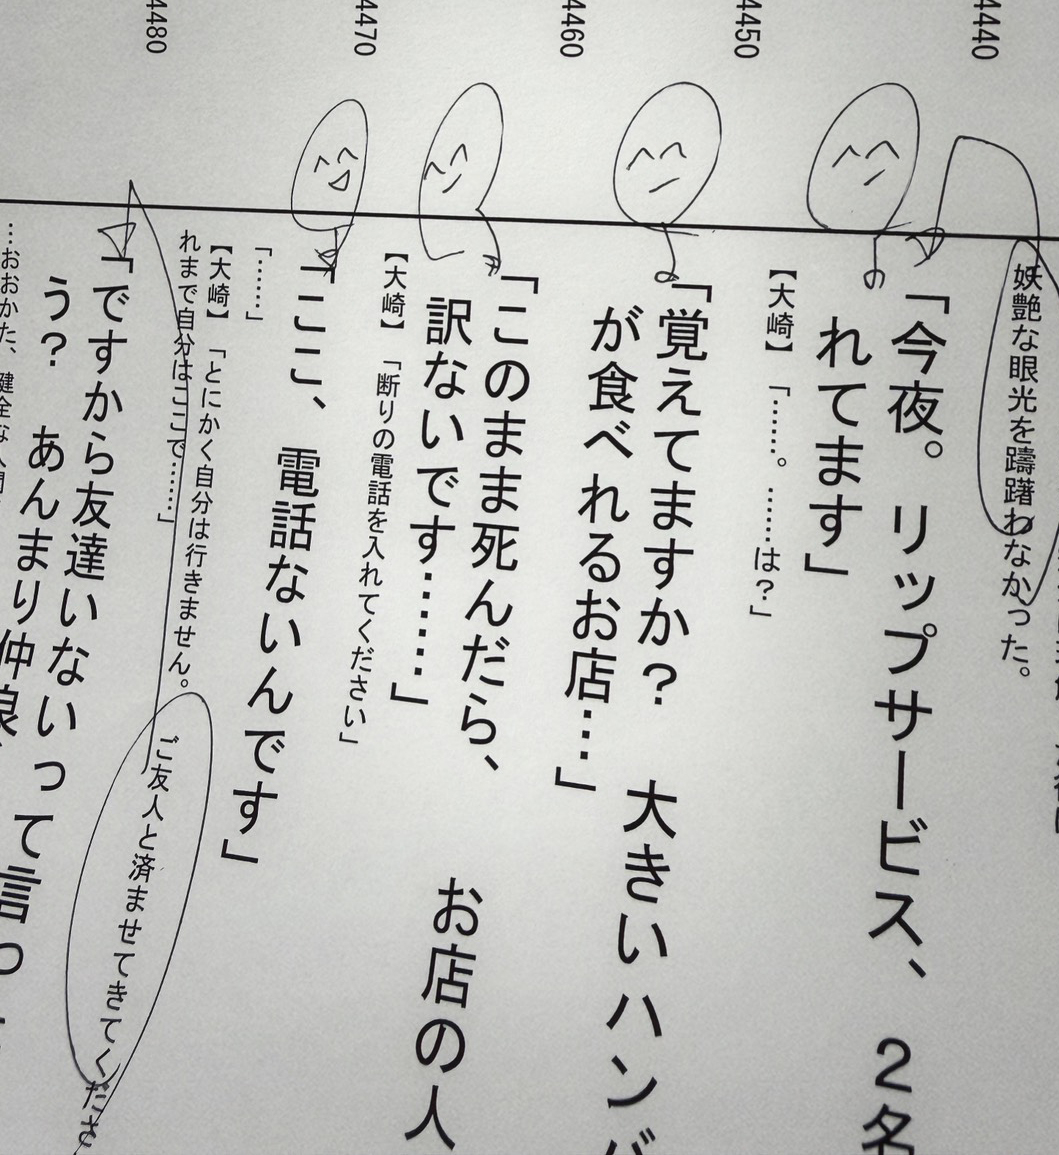 4440
4450
4460
4470
4480
妖艶な眼光を躊躇わなかった。
「今夜。リップサービス、　２名
れてます」
【大崎】　「……。……は？」
「覚えてますか？　大きいハンバ
が食べれるお店…」
「このまま死んだら、　お店の人
訳ないです……」
【大崎】　「断りの電話を入れてください」
「ここ、　電話ないんです」
「……」
【大崎】　「とにかく自分は行きません。　ご友人と済ませてきてくださ
れまで自分はここで……」
「ですから友達いないって言っ
う？　あんまり仲良
…おおかた、健全な人間